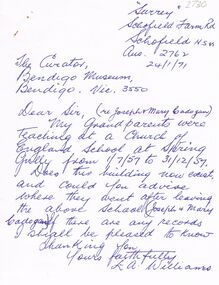 2730
"Surrey"
Schofield Farm Rd
Schofield N.S.W
Aus. 2762
24/1/71
The Curator,
Bendigo Museum,
Bendigo. Vic. 3550
Dear Sir, (re Joseph & Mary Cadogan)
My Grandparents were
teaching at a Church of
England School at Spring
Gully from 1/7/57 to 31/12/59.
Does this building now exist,
and could you advise
where they went after leaving
the above School (Joseph & Mary
Cadogan) there are any records
I shall be pleased to know
Thanking You,
Yours faithfully
L A Williams